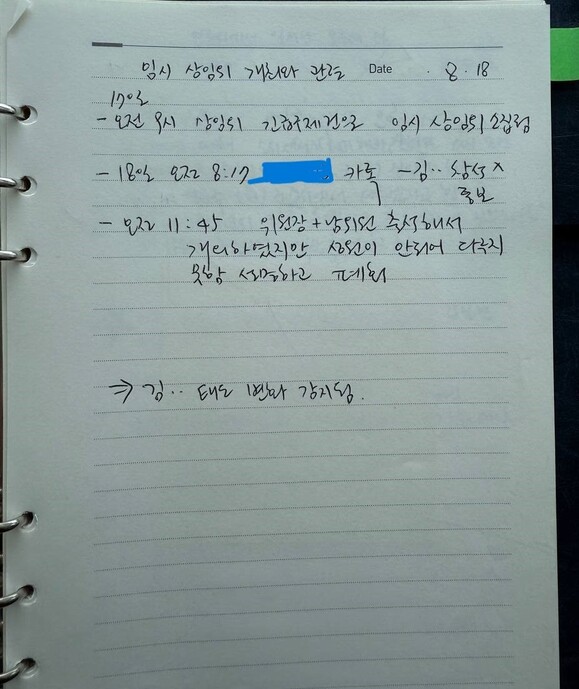 임시 상임위 개최와 관련 Date . 8. 18
17일
- 오전 9시 상임위 긴급구제건으로 임시 상임위 소집됨
- 18일 오전 8:17 카톡 - 김.. 참석 x
통보
- 오전 11:45 위원장 + 남위원 출석해서
개의하였지만 성원이 안되어 다루지
못함 설명하고 폐회
⇒ 김.. 태도 변화 감지됨.